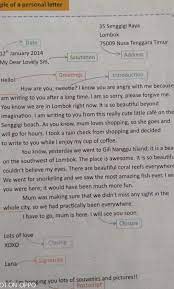 ple of a personal letter
35 Senggigi Raya
Lombok
75009 Nusa Tenggara Timur
Date
12th January 2014
Address
My Dear Lovely Siti,
Salutation
Greetings
Introduction
Hello!
How are you, sweetie? I know you are angry with me because
am writing to you after a long time. I am so sorry, please forgive me.
You know we are in Lombok right now. It is so beautiful beyond
imagination. I am writing to you from this really cute little café on the
Senggigi beach. As you know, mum loves shopping, so she goes and
will go for hours. I took a rain check from shopping and decided
to write to you while I enjoy my cup of coffee.
You know, yesterday we went to Gili Nanggu Island; it is a bea
on the southwest of Lombok. The place is awesome. It is so beautiful
couldn't believe my eyes. There are beautiful coral reefs everywhere
We went for snorkelling and we saw the most amazing fish ever. I w
you were here; it would have been much more fun.
Mum was making sure that we didn't miss any sight in the
whole city, so we had practically been everywhere.
I have to go, mum is here. I will see you soon.
Closure
Lots of love
XOXO
Closing
Lana
Signature
I am bringing you lots of souvenirs and pictures!!
Postscript
OT ON OPPO